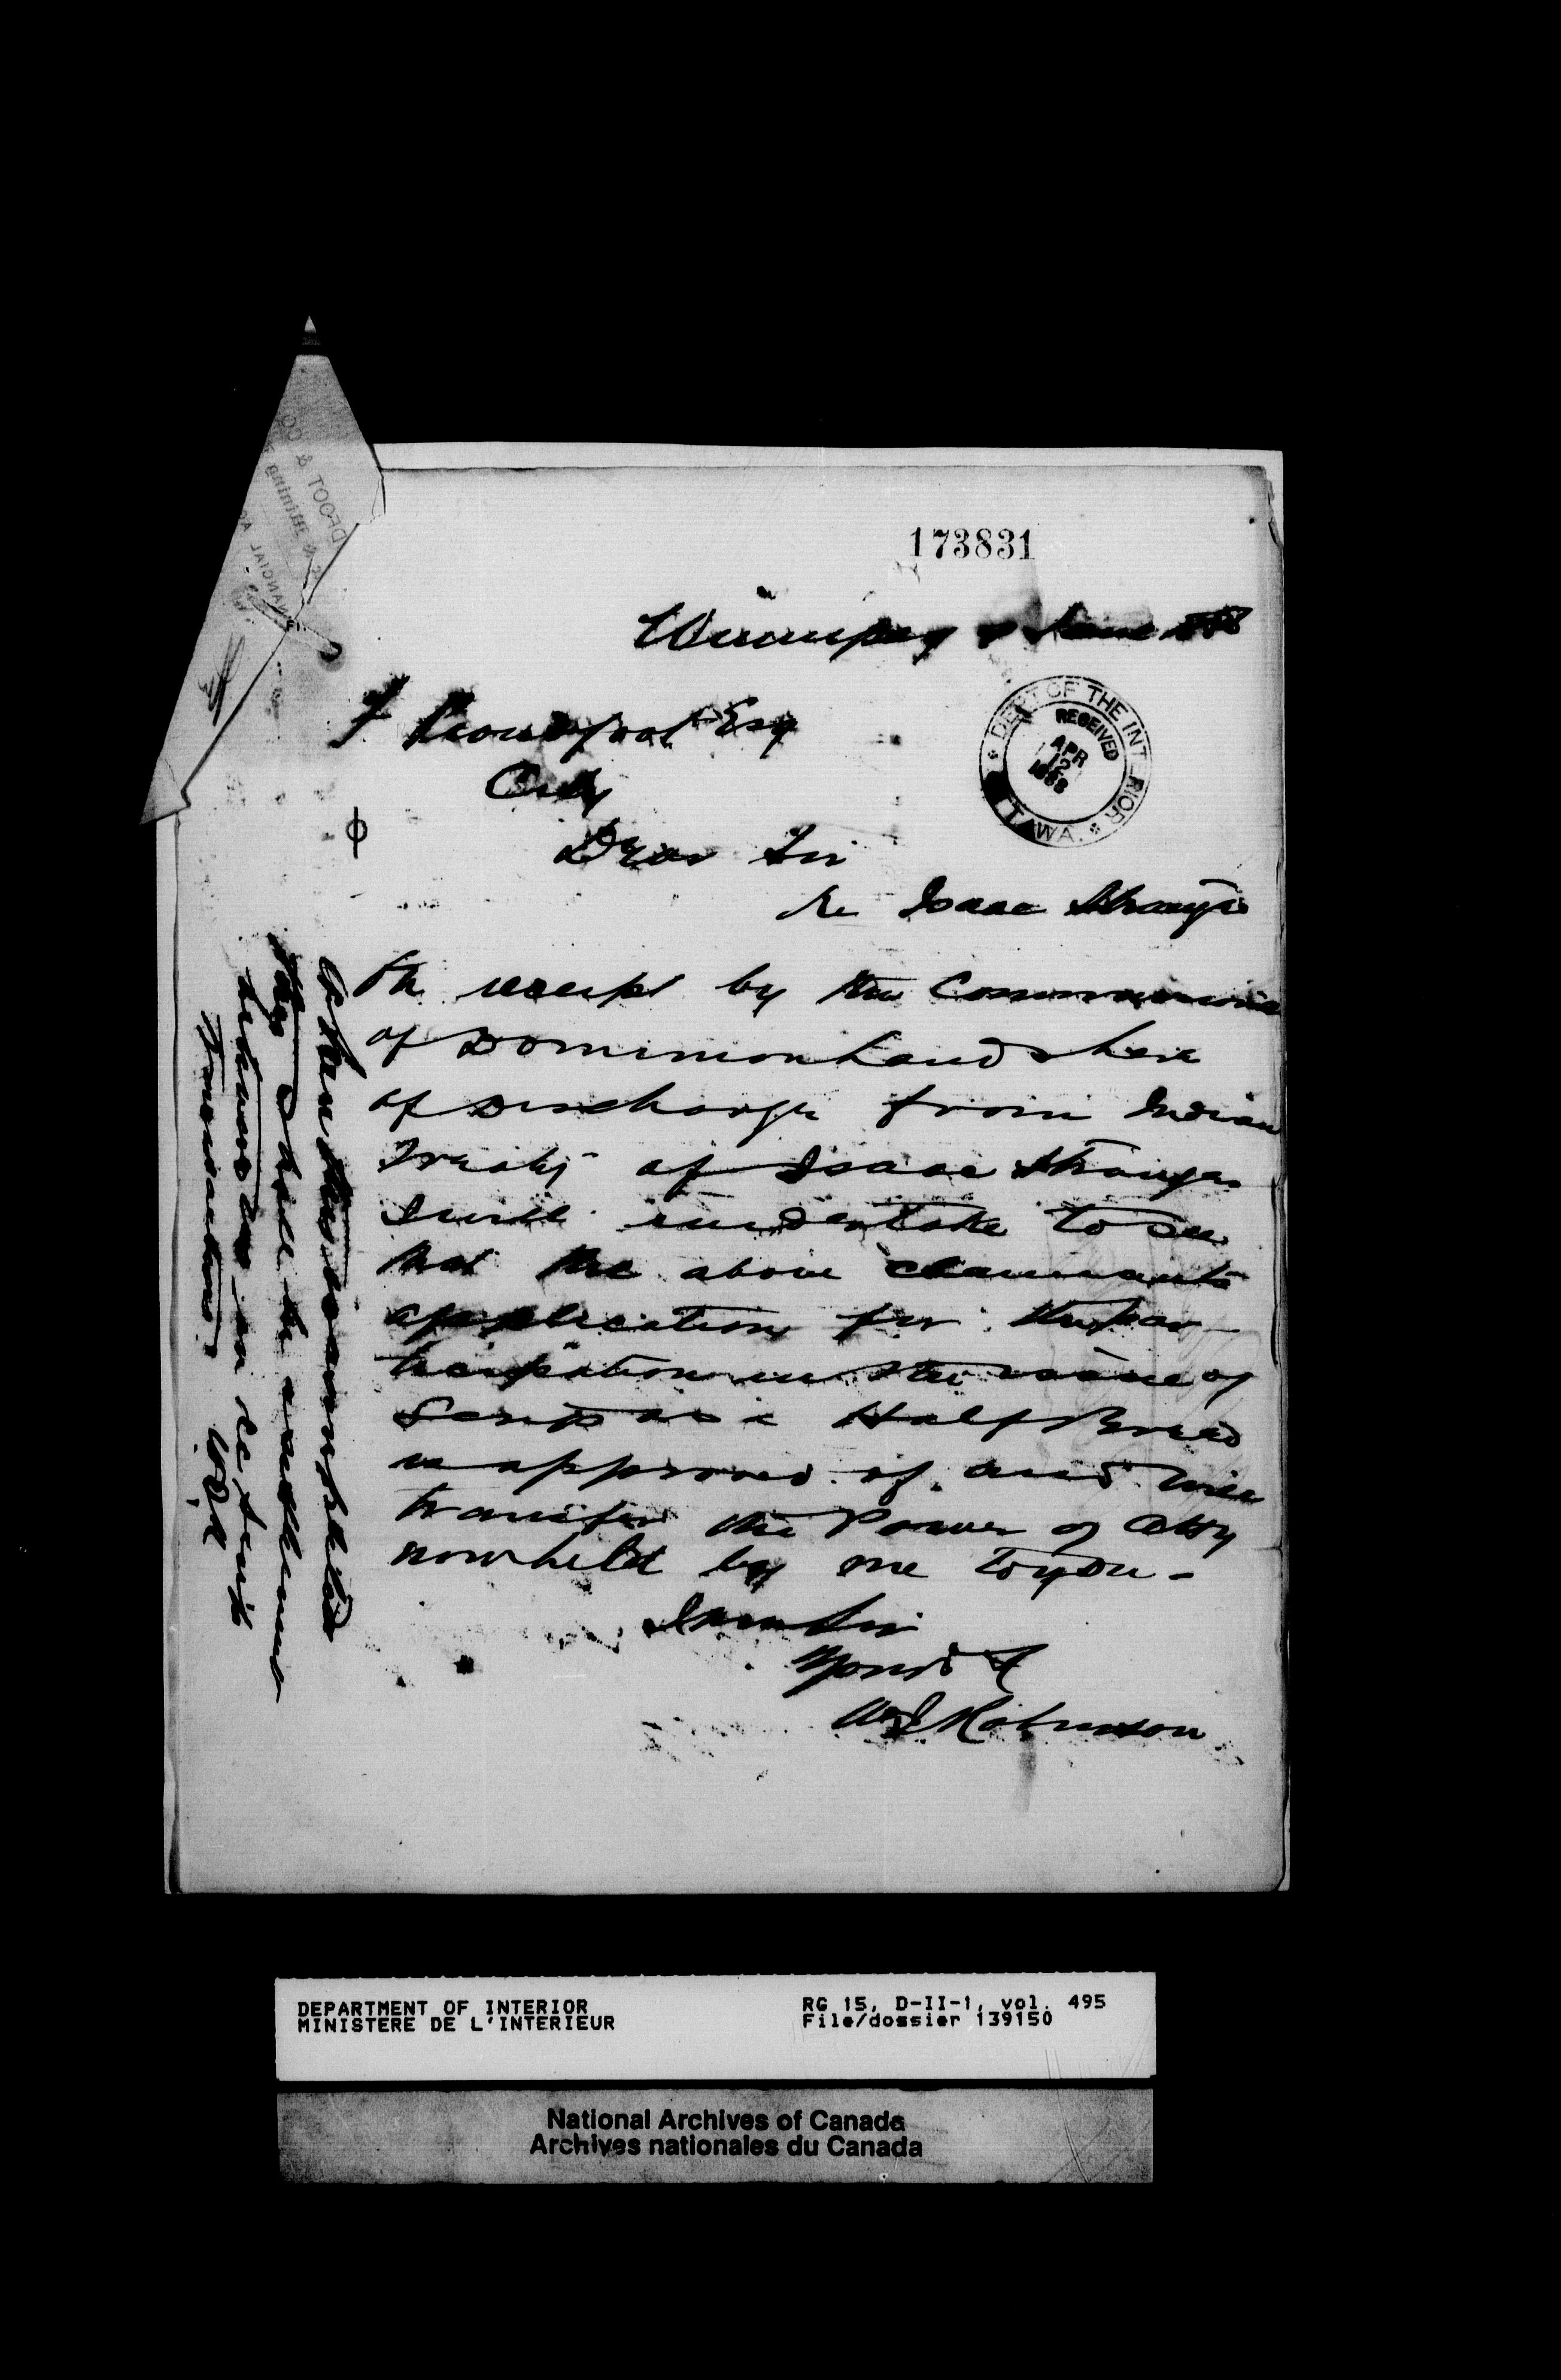 173831
Winnipeg June 1888
F Proudfoot Esq
City
Dear Sir
DEPT OF THE INTERIOR
RECEIVED
APR
12
1888
TAWA.
Re Isaac Stranger
On receipt by the Commissioner
of Dominion Lands here
of Discharge from Indian
Treaty of Isaac Stranger
I will undertake to see
that the above claimants
application for the par
ticipation in the issue of
Scrip as a Half Breed
is approved of and will
transfer the Power of Atty
now held by me to you -
I am Sir
Yours &
W J Robinson
When this is
to be a
in
Transactions
WJR
DFOOT & CO
DEPARTMENT OF INTERIOR
MINISTERE DE L'INTERIEUR
RG 15, D-II-1, vol. 495
File/dossier 139150
National Archives of Canada
Archives nationales du Canada